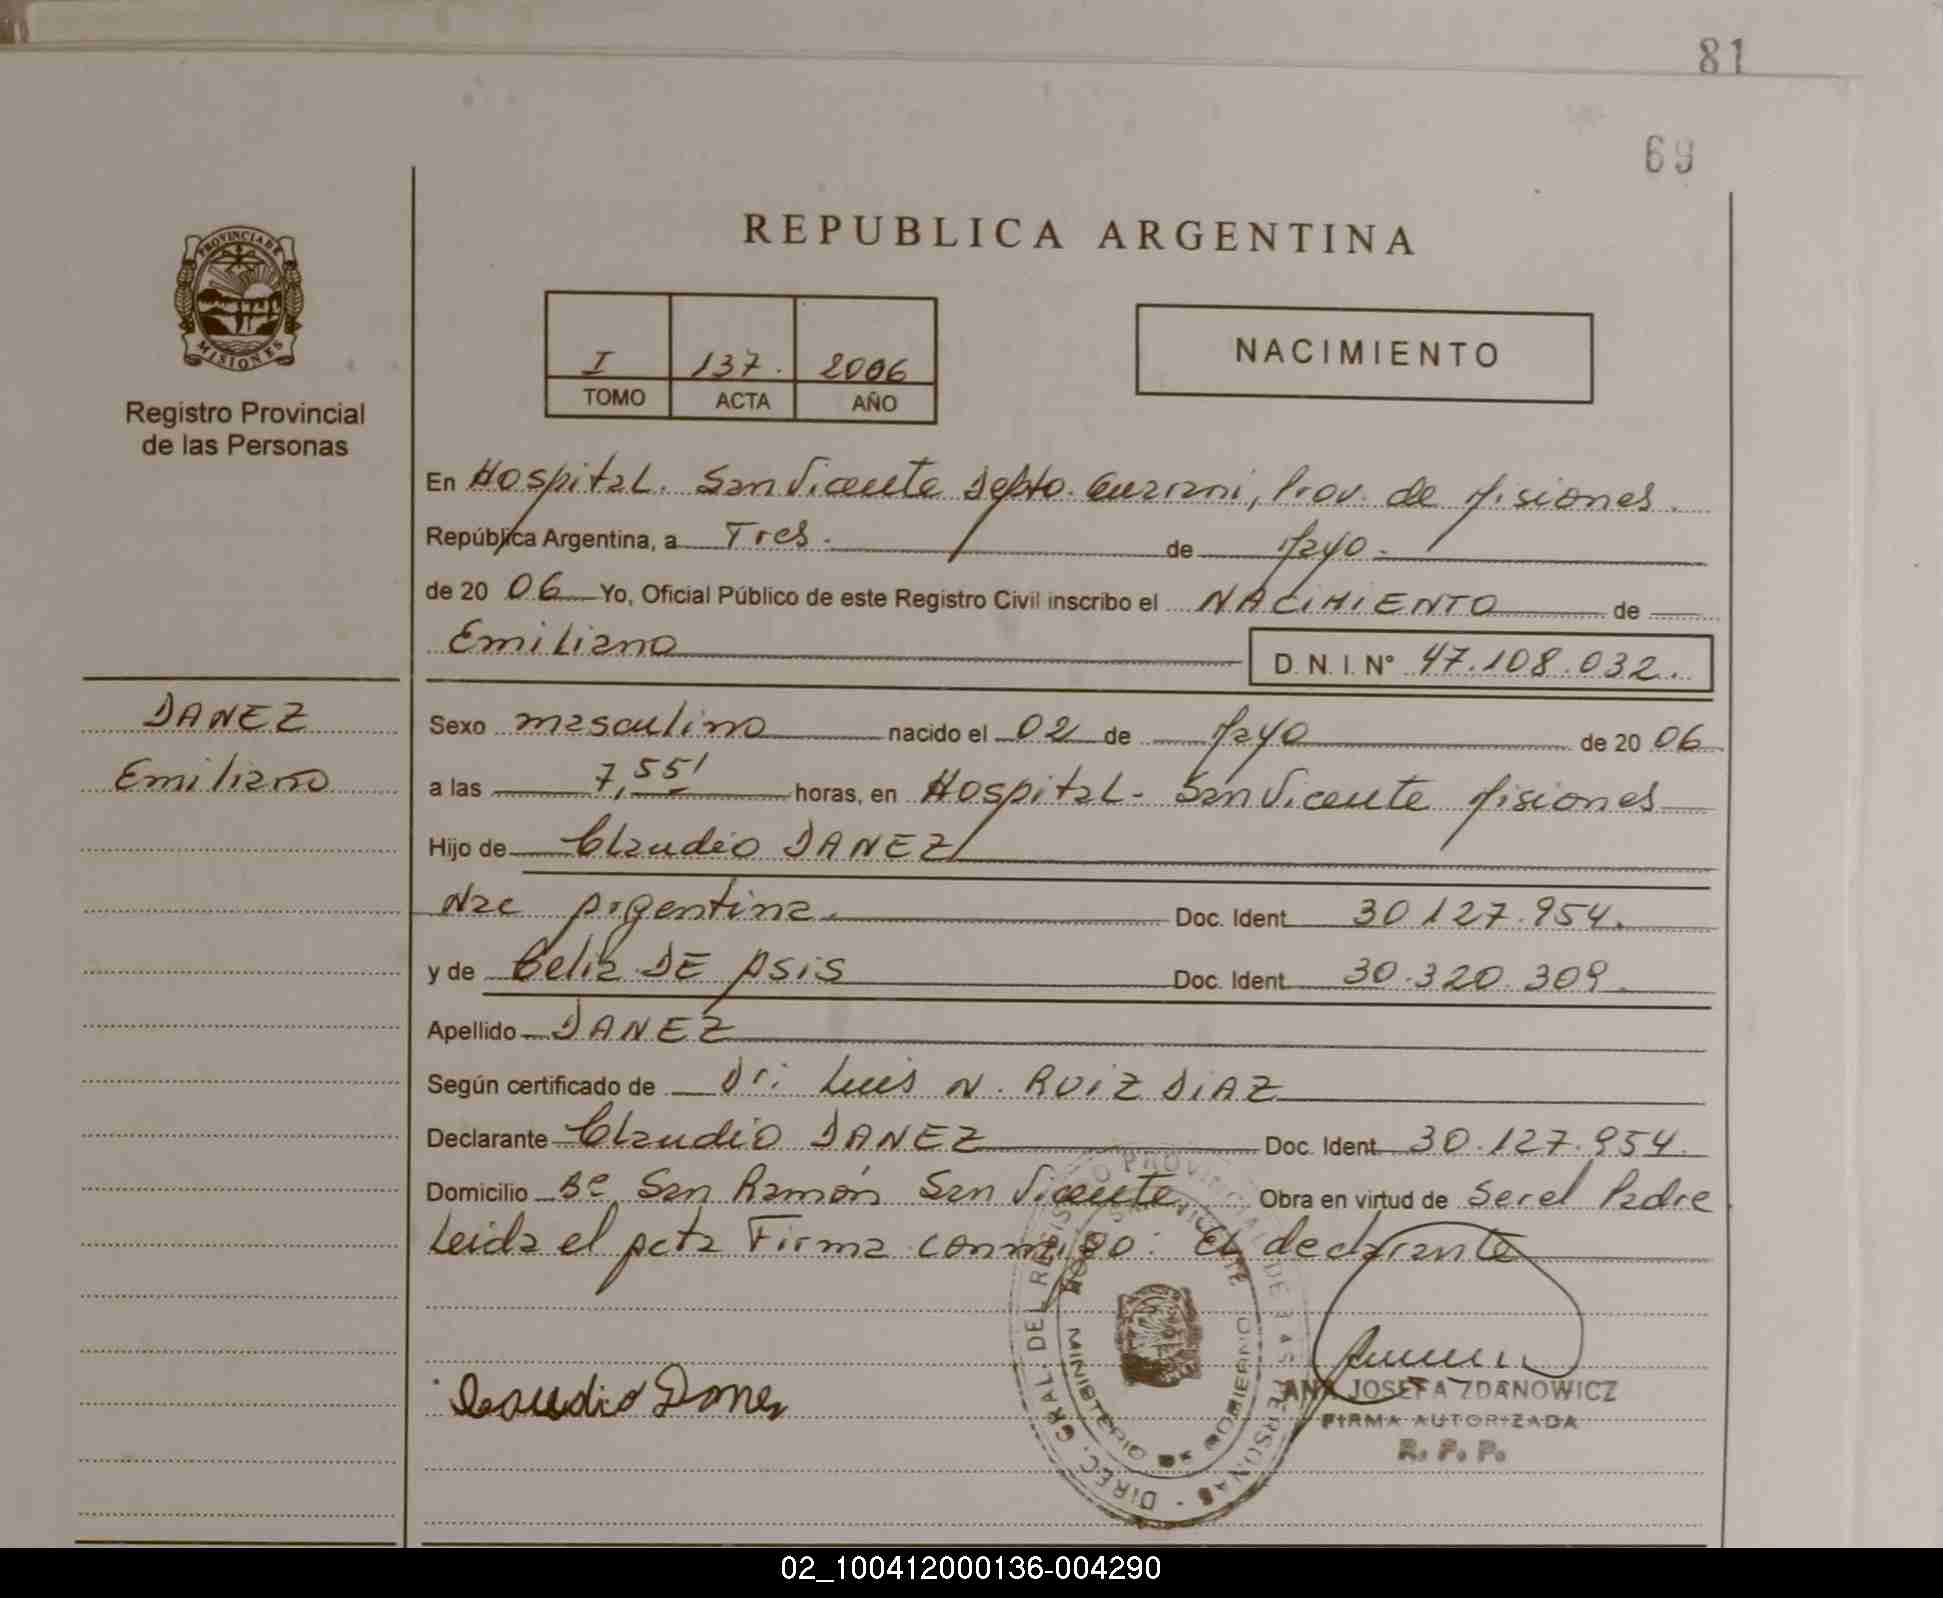 81
69
REPUBLICA ARGENTINA
PROVINCIA DE
MISIONES
Registro Provincial
de las Personas
I 137. 2006
TOMO ACTA AÑO
NACIMIENTO
En Hospital. San Vicente Depto. Guarani, Prov. de Misiones.
República Argentina, a Tres. de Mayo.
de 20 06 Yo, Oficial Público de este Registro Civil inscribo el NACIMIENTO de
Emiliano D. N. I. N° 47.108.032.
DANEZ
Emiliano
Sexo masculino nacido el 02 de Mayo de 20 06
a las 7,55' horas, en Hospital- San Vicente Misiones
Hijo de Claudio DANEZ
Nac Argentina. Doc. Ident. 30.127.954.
y de Celia DE ASIS Doc. Ident. 30.320.309.
Apellido DANEZ
Según certificado de Dr: Luis N. RUIZ DIAZ
Declarante Claudio DANEZ Doc. Ident. 30.127.954.
Domicilio Bº San Ramón San Vicente Obra en virtud de Ser el Padre
Leida el acta Firma conmigo: El declarante
Claudio Danez
DIREC. GRAL. DEL REGISTRO PROVINCIAL DE LAS PERSONAS
MINISTERIO GOBIERNO
ANA JOSEFA ZDANOWICZ
FIRMA AUTORIZADA
R. P. P.
02_100412000136-004290